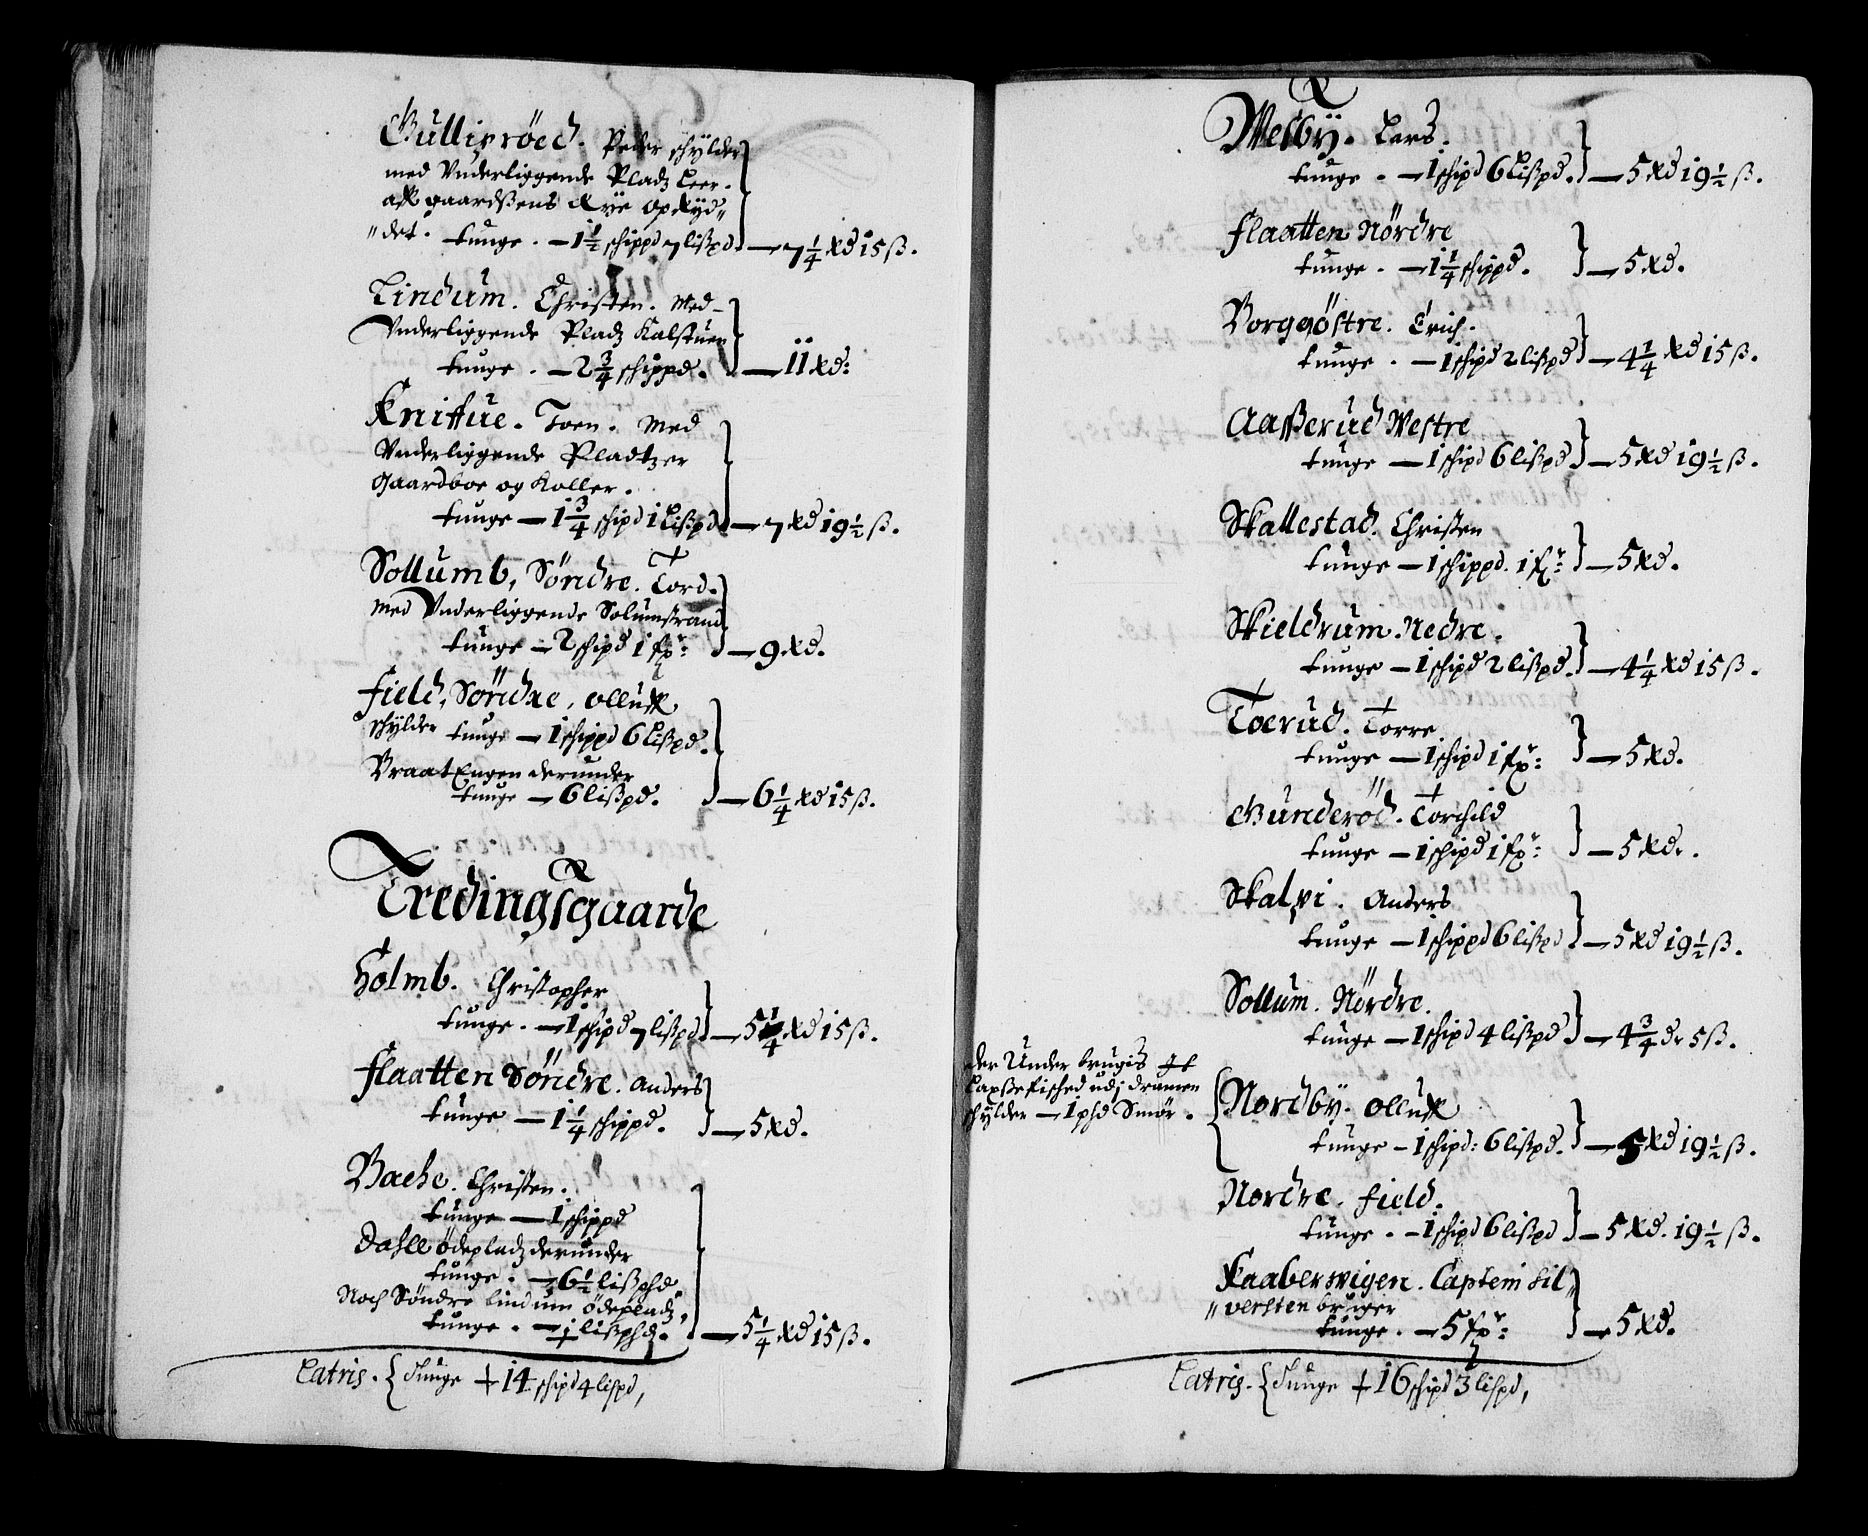 Gullisröed. Peder schylder
med Underliggende Pladz Leer.
aff gaardßens Rye opryd„
„det. tunge. — 1½ schippd 7 lißpd. — 7¼ Rd 15 ß.
Lindum. Christen. Med
Underliggende Pladz Kalstuen
tunge. — 2¾ schippd. — 11 Rd:
Kniffue. Toen. Med
Underliggende Pladtzer
Gaardboe og Koller.
tunge — 1¾ schipd 1 Lißpd — 7 Rd 19½ ß.
Sollumb, Söndre. Tord.
Med Underliggende Solumstrand
tunge — 2 schipd 1 fz: — 9 Rd.
Field, Söndre, Olluff
schylder tunge — 1 schippd 6 Lißpd.
Braat Engen derunder
tunge — 6 lißpd. — 6¼ Rd 15 ß.
Tredingsgaarde
Holmb. Christopher
tunge. — 1 schipd 7 lißpd — 5¼ Rd 15 ß.
Flaatten Söndre. Anders
tunge — 1¼ schippd. — 5 Rd.
Bache. Christen.
tunge — 1 schippd
Dahle ödepladz derunder
tunge. — 6½ lißphd
Noch Söndre Lindum ödepladz
tunge. — 1 lißphd. — 5¼ Rd 15 ß.
Latris. { Tunge + 14 schipd 4 lispd,
Welby. Lars.
tunge. — 1 schipd 6 Lißpd. — 5 Rd 19½ ß.
Flaatten Nördre
tunge. — 1¼ schippd. — 5 Rd.
Borgg östre. Erich.
tunge. — 1 schipd 2 lißpd — 4¼ Rd 15 ß.
Aaßerud Westre
tunge — 1 schipd 6 lißpd — 5 Rd 19½ ß.
Skallestad. Christen
tunge — 1 schippd. 1 fz: — 5 Rd.
Skieldrum. Nedre.
tunge — 1 schipd 2 lißpd. — 4¼ Rd 15 ß.
Toerud. Torre
tunge — 1 schipd 1 fz: — 5 Rd.
Gunderöd. Torchild
tunge — 1 schipd 1 fz: — 5 Rdr.
Skalpi. Anders
tunge — 1 schippd 6 lißpd — 5 Rd 19½ ß.
Sollum. Nördre.
tunge — 1 schipd 4 lißpd — 4¾ dr 5 ß.
der Under brugis et
Laxße fisched udj dramen
schylder — 1 phd Smör.
Nordby. Olluff
tunge — 1 schipd: 6 lißpd. — 5 Rd 19½ ß.
Nordre. Field.
tunge. — 1 schipd 6 lißpd — 5 Rd. 19½ ß.
Kaaberwigen. Captein Sil„
„versten bruger
tunge. — 5 fz: — 5 Rd.
Latris. { Tunge + 16 schipd 3 lispd,